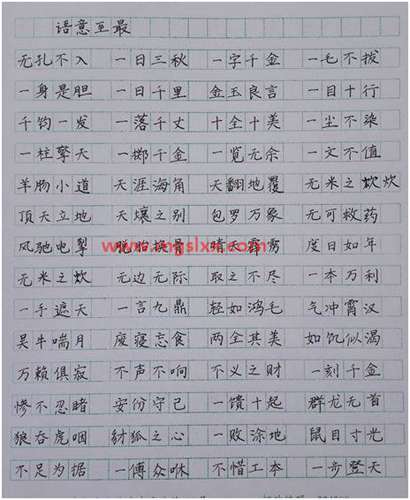 语意互最
无孔不入 一日三秋 一字千金 一毛不拔
一身是胆 一日千里 金玉良言 一目十行
千钧一发 一落千丈 十全十美 一尘不染
一柱擎天 一掷千金 一览无余 一文不值
羊肠小道 天涯海角 天翻地覆 无米之炊炊
顶天立地 天壤之别 包罗万象 无可救药
风驰电掣 脱胎换骨 晴天霹雳 度日如年
无米之炊 无边无际 取之不尽 一本万利
一手遮天 一言九鼎 轻如鸿毛 气冲霄汉
吴牛喘月 废寝忘食 两全其美 如饥似渴
万籁俱寂 不声不响 不义之财 一刻千金
惨不忍睹 安份守己 一馈十起 群龙无首
狼吞虎咽 豺狐之心 一败涂地 鼠目寸光
不足为据 一傅众咻 不惜工本 一步登天